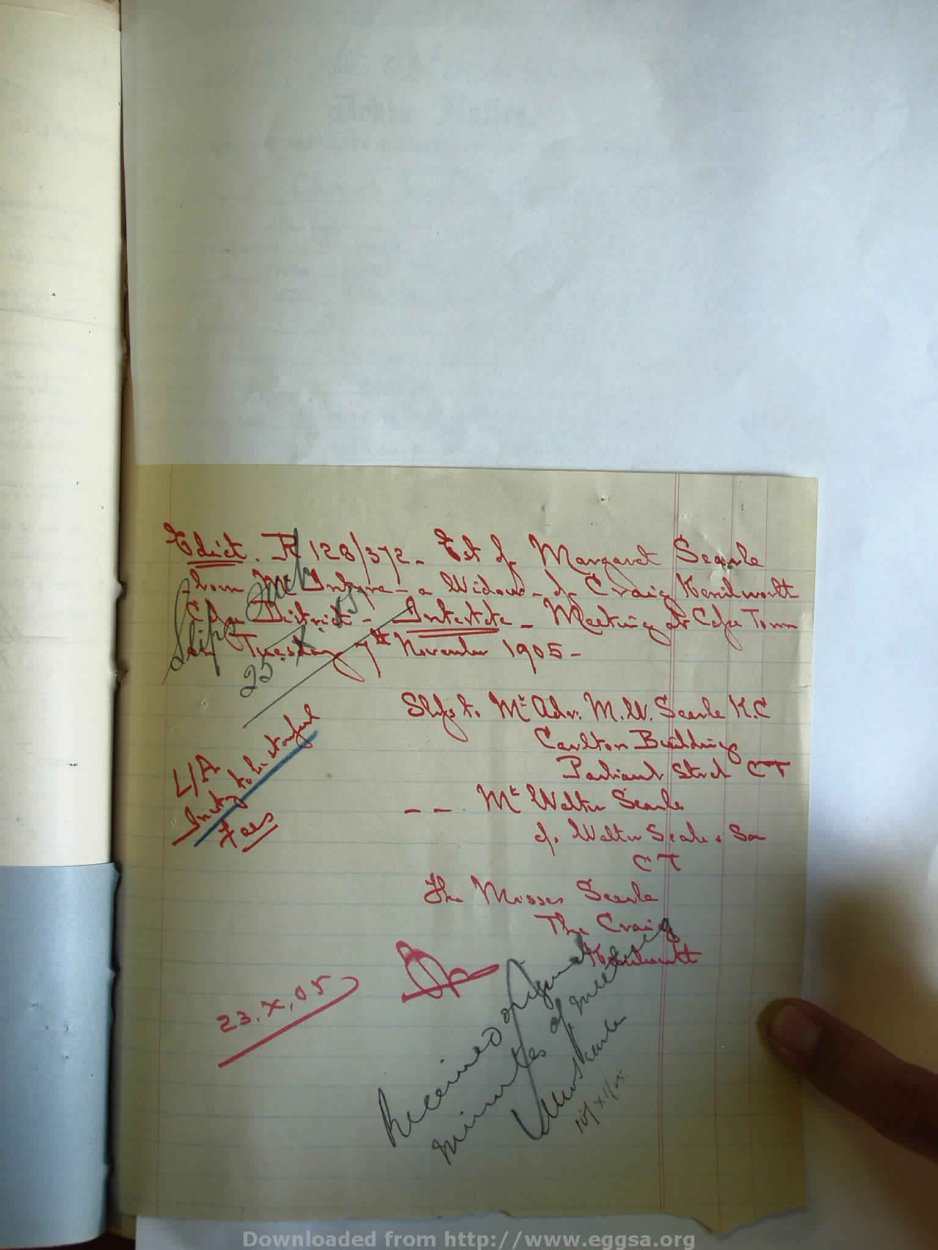 Edict. 128/372 – Est of Margaret Searle
born McIntyre – a Widow – of Craig Kenilworth
Cape District – Intestate – Meeting at Cape Town
on Tuesday 7th November 1905 –
Slips
25.X.05
Slips to Mr Adv. M.W. Searle K.C
Carlton Building
Parliamt Street CT
L/A
– – Mr Walter Searle
of Walter Searle & Son
CT
The Misses Searle
The Craig
Kenilworth
23.X.05
Received original
minutes of meeting
Searle
Downloaded from http://www.eggsa.org